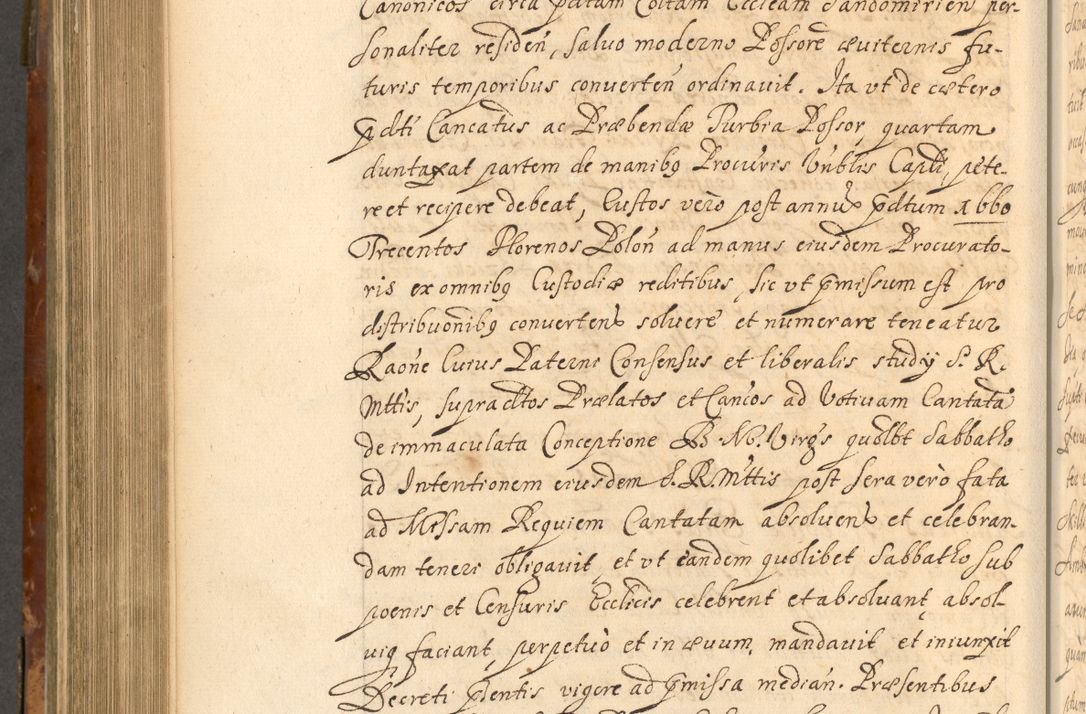 Canonicos circa pdtam Coltam Eccleam Sandomirien per-
sonaliter residen, salvo moderno Possore æviternis fu-
turis temporibus converten ordinavit. Ita vt de cætero
pdti Cancatus ac Præbendæ Turbia Possor quartam
duntaxat partem de manibq Procuris Vnblis Capli, pete-
re et recipere debeat, Custos vero post annu pdtum 1660
Trecentos Florenos Polon ad manus eiusdem Procurato-
ris ex omnibq Custodiæ reditibus, sic vt pmissum est pro
distribuonibq converten solvere et numerare teneatur
Raone Cuius Paterni Consensus et liberalis studij S. R.
Mttis, supra dtos Prælatos et Cancos ad Votivam Cantata
de immaculata Conceptione B. M. Virgs quolbt Sabbatho
ad Intentionem eiusdem S. R. Mttis post sera verò fata
ad Missam Requiem Cantatam absolven et celebran-
dam teneri obligavit, et vt eandem quolibet Sabbatho sub
poenis et Censuris Ecclicis celebrent et absolvant, absol-
viq faciant, perpetuò et in ævum, mandavit et iniunxit
Decreti pntis vigore ad pmissa median. Præsentibus